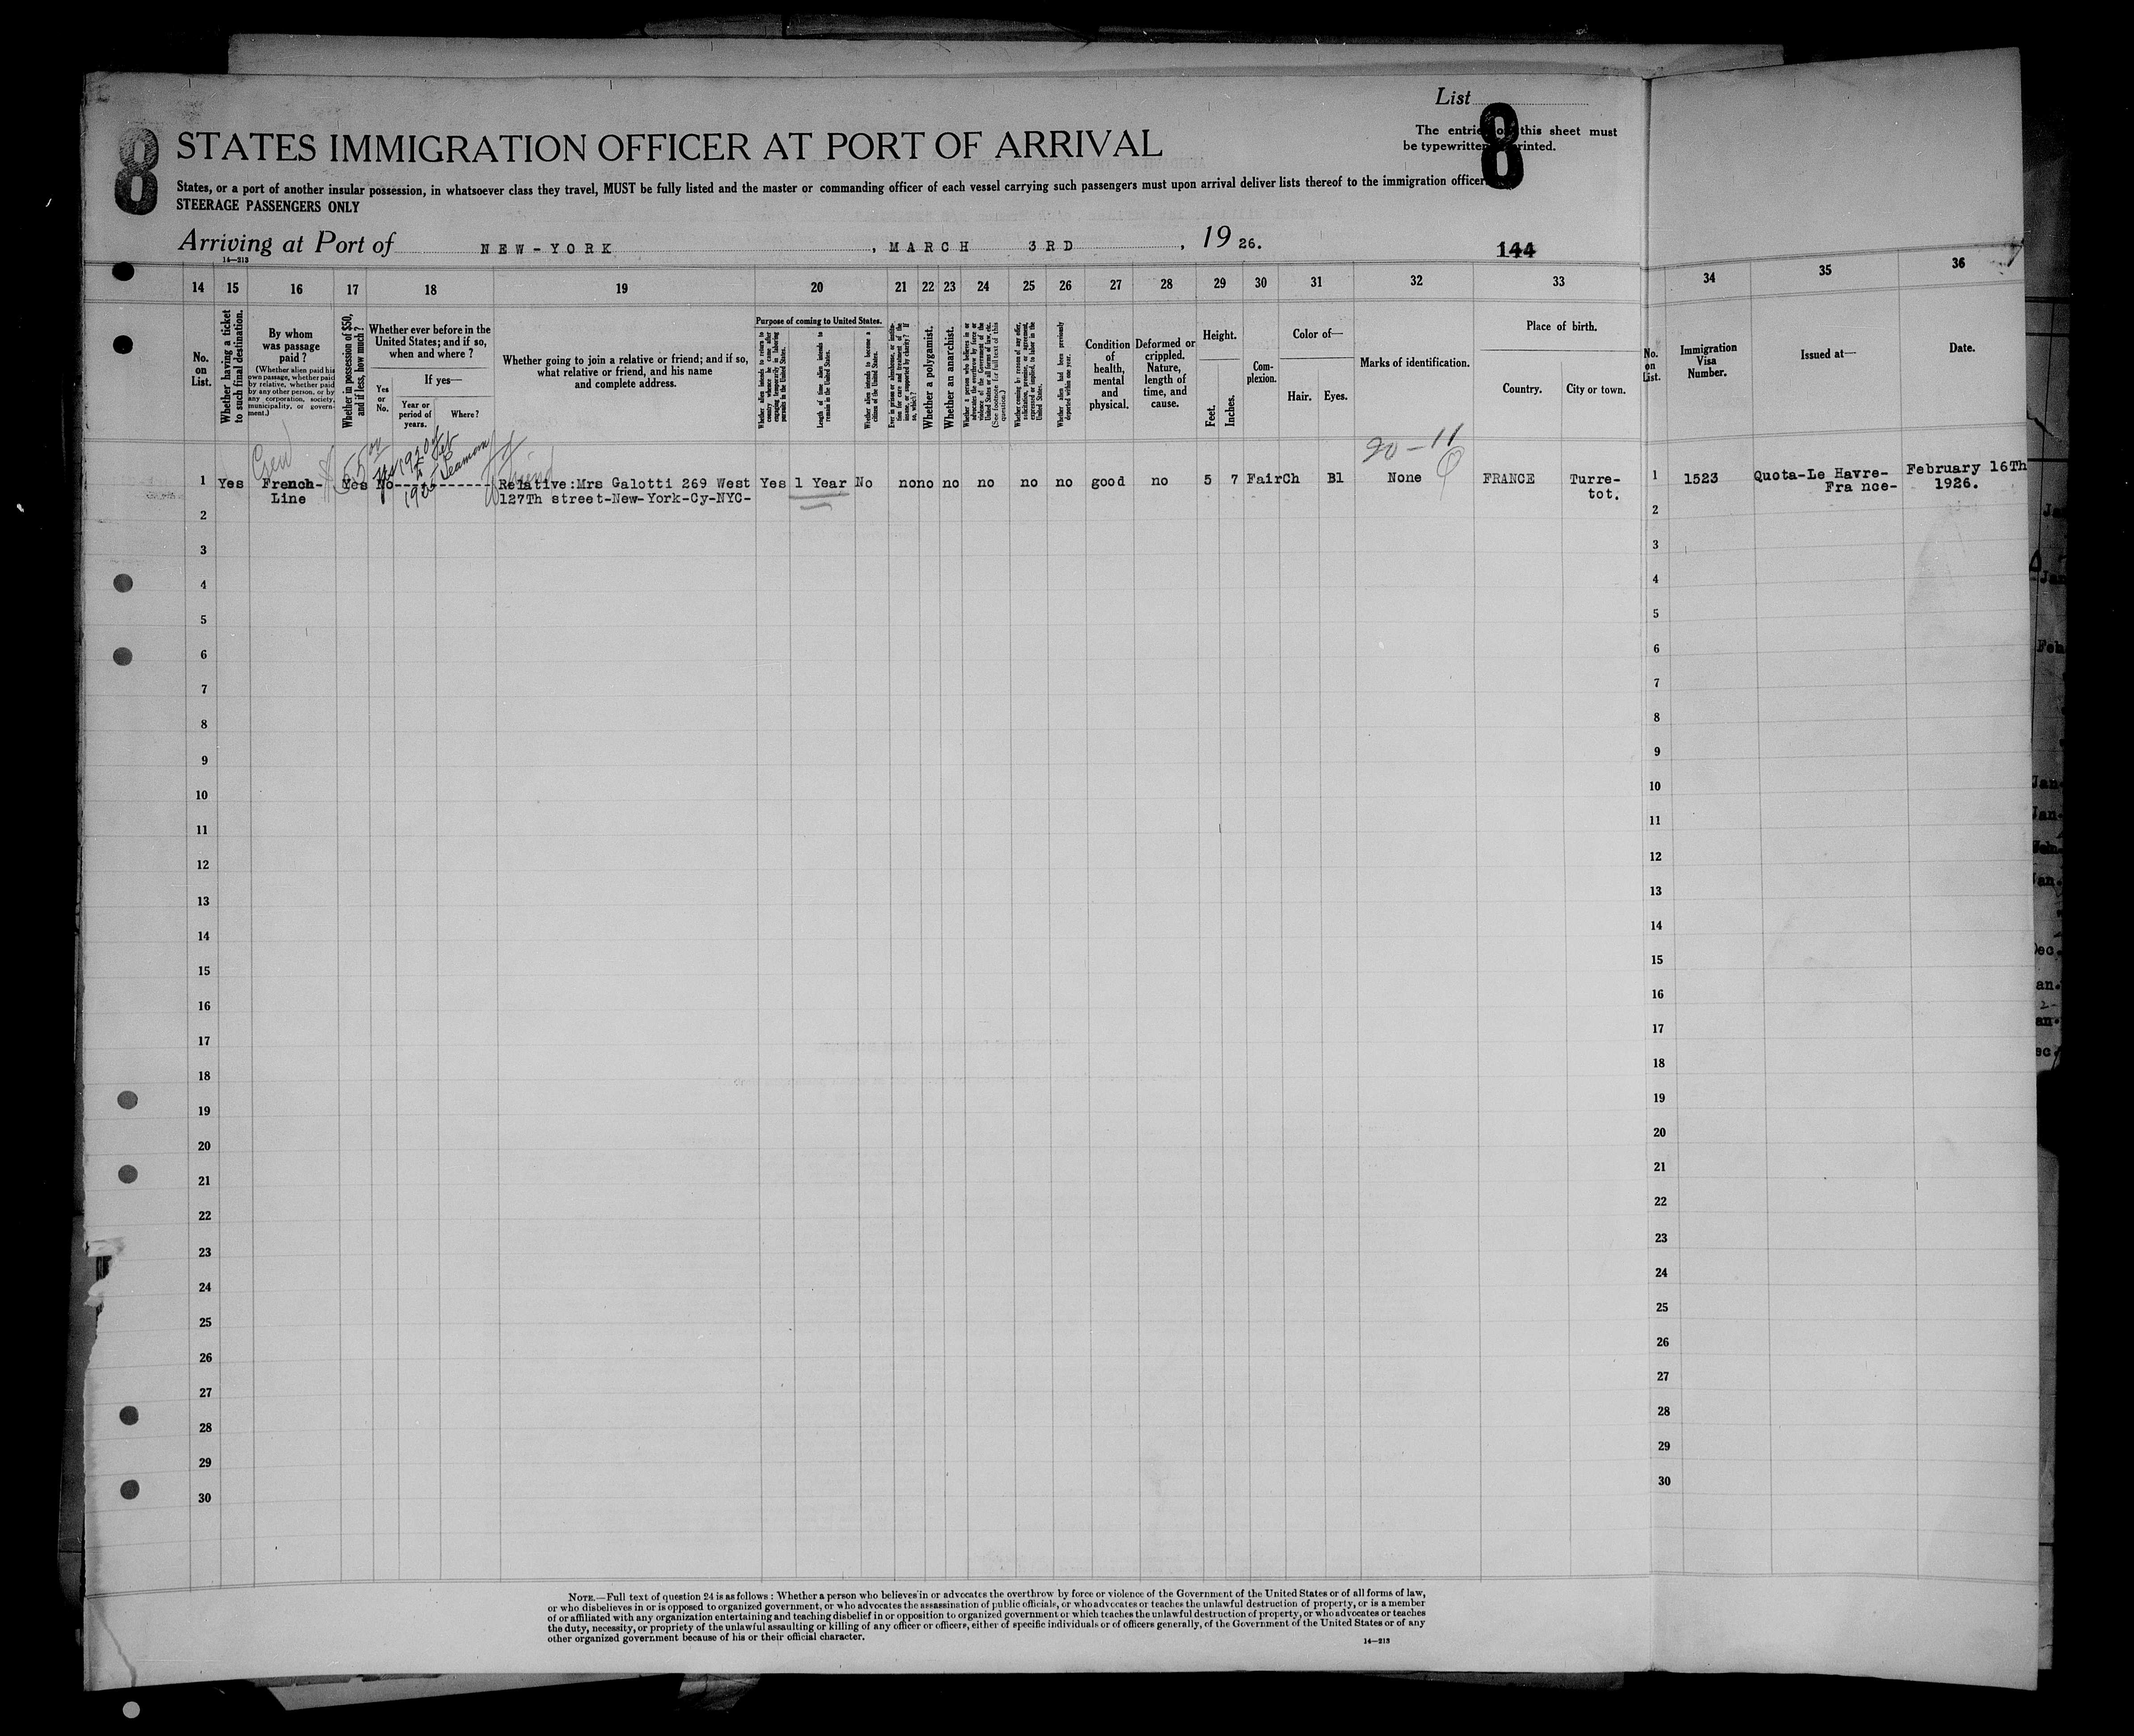 List
8
8
The entries on this sheet must
be typewritten or printed.
STATES IMMIGRATION OFFICER AT PORT OF ARRIVAL
States, or a port of another insular possession, in whatsoever class they travel, MUST be fully listed and the master or commanding officer of each vessel carrying such passengers must upon arrival deliver lists thereof to the immigration officer
STEERAGE PASSENGERS ONLY
Arriving at Port of NEW-YORK, MARCH 3RD, 1926.
144
14—213
14 15 16 17 18 19 20 21 22 23 24 25 26 27 28 29 30 31 32 33 34 35 36
No. on List.
Whether having a ticket to such final destination.
By whom was passage paid?
(Whether alien paid his own passage, whether paid by relative, whether paid by any other person, or by any corporation, society, municipality, or government.)
Whether in possession of $50, and if less, how much?
Whether ever before in the United States; and if so, when and where?
Yes or No.
If yes—
Year or period of years.
Where?
Whether going to join a relative or friend; and if so, what relative or friend, and his name and complete address.
Purpose of coming to United States.
Whether alien intends to return to country whence he came after engaging temporarily in laboring pursuits in the United States.
Length of time alien intends to remain in the United States.
Whether alien intends to become a citizen of the United States.
Ever in prison or almshouse, or institution for care and treatment of the insane, or supported by charity? If so, which?
Whether a polygamist.
Whether an anarchist.
Whether a person who believes in or advocates the overthrow by force or violence of the Government of the United States or all forms of law, etc. (See footnote for full text of this question.)
Whether coming by reason of any offer, solicitation, promise, or agreement, expressed or implied, to labor in the United States.
Whether alien had been previously deported within one year.
Condition of health, mental and physical.
Deformed or crippled. Nature, length of time, and cause.
Height.
Feet.
Inches.
Complexion.
Color of—
Hair.
Eyes.
Marks of identification.
Place of birth.
Country.
City or town.
No. on List.
Immigration Visa Number.
Issued at—
Date.
Crew
55
Yes 1920
1925
Seaman
friend
20-11
1 Yes French- Yes No------------Relative:Mrs Galotti 269 West Yes 1 Year No no no no no no no good no 5 7 Fair Ch Bl None FRANCE Turre- 1 1523 Quota-Le Havre- February 16Th
Line 127Th street-New-York-Cy-NYC- tot. Fra nce- 1926.
2 2
3 3
4 4
5 5
6 6
7 7
8 8
9 9
10 10
11 11
12 12
13 13
14 14
15 15
16 16
17 17
18 18
19 19
20 20
21 21
22 22
23 23
24 24
25 25
26 26
27 27
28 28
29 29
30 30
NOTE.—Full text of question 24 is as follows: Whether a person who believes in or advocates the overthrow by force or violence of the Government of the United States or of all forms of law,
or who disbelieves in or is opposed to organized government, or who advocates the assassination of public officials, or who advocates or teaches the unlawful destruction of property, or is a member
of or affiliated with any organization entertaining and teaching disbelief in or opposition to organized government or which teaches the unlawful destruction of property, or who advocates or teaches
the duty, necessity, or propriety of the unlawful assaulting or killing of any officer or officers, either of specific individuals or of officers generally, of the Government of the United States or of any
other organized government because of his or their official character.
14—213